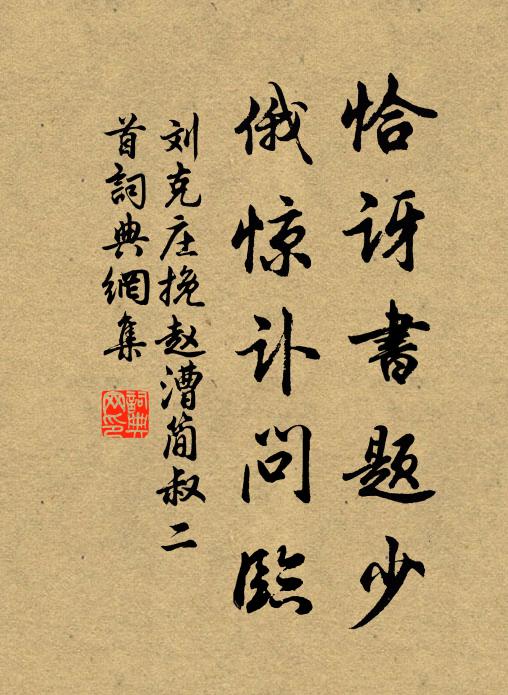 恰讶書题少
俄惊讣问臨
刘克庄挽赵漕简叔二
首詞典網集
詞典
网印